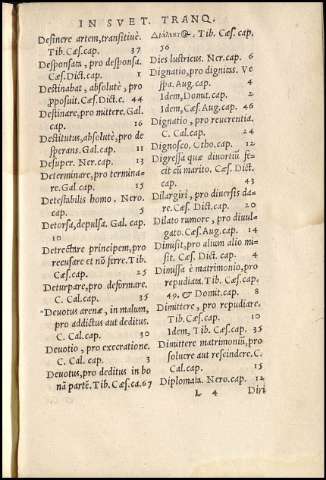 IN SVET. TRANQ.
Desinere artem, transitiuè.
Tib. Cæs. cap. 37
Desponsata, pro desponsa.
Cæs. Dict. cap. 1
Destinabat, absolutè, pro
pposuit. Cæs. Dict. c. 44
Destinare, pro mittere. Gal.
cap. 16
Destitutus, absolutè, pro de
sperans. Gal. cap. 11
Desuper. Ner. cap. 13
Determinare, pro termina-
re. Gal. cap. 15
Detestabilis homo, Nero.
cap. 5
Detorsa, depulsa. Gal. cap.
10
Detrectare principem, pro
recusare et nō ferre. Tib.
Cæs. cap. 25
Deturpare, pro deformare.
C. Cal. cap. 35
Deuotus arenæ, in malum,
pro addictus aut deditus.
C. Cal. cap. 30
Deuotio, pro execratione.
C. Cal. cap. 3
Deuotus, pro deditus in bo
nā partē. Tib. Cæs. ca. 67
Tib. Cæs. cap.
56
Dies lustricus. Ner. cap. 6
Dignatio, pro dignitas. Ve
spa. Aug. cap. 4
Idem, Domit. cap. 2
Idem, Cæs. Aug. cap. 46
Dignatio, pro reuerentia.
C. Cal. cap. 24
Dignosco. Otho. cap. 12
Digressa quæ diuortiū fe-
cit cū marito. Cæs. Dict.
cap. 43
Dilargiri, pro diuersis da-
re. Cæs. Dict. cap. 20
Dilato rumore, pro diuul-
gato. Cæs. Aug. cap. 14
Dimisit, pro alium alio mi-
sit. Cæs. Dict. cap. 4
Dimissa è matrimonio, pro
repudiata. Tib. Cæs. cap.
49. & Domit. cap. 8
Dimittere, pro repudiare.
Tib. Cæs. cap. 10
Idem, Tib. Cæs. cap. 35
Dimittere matrimoniū, pro
soluere aut rescindere. C.
Cal. cap. 15
Diplomata. Nero. cap. 12
L 4 Diri